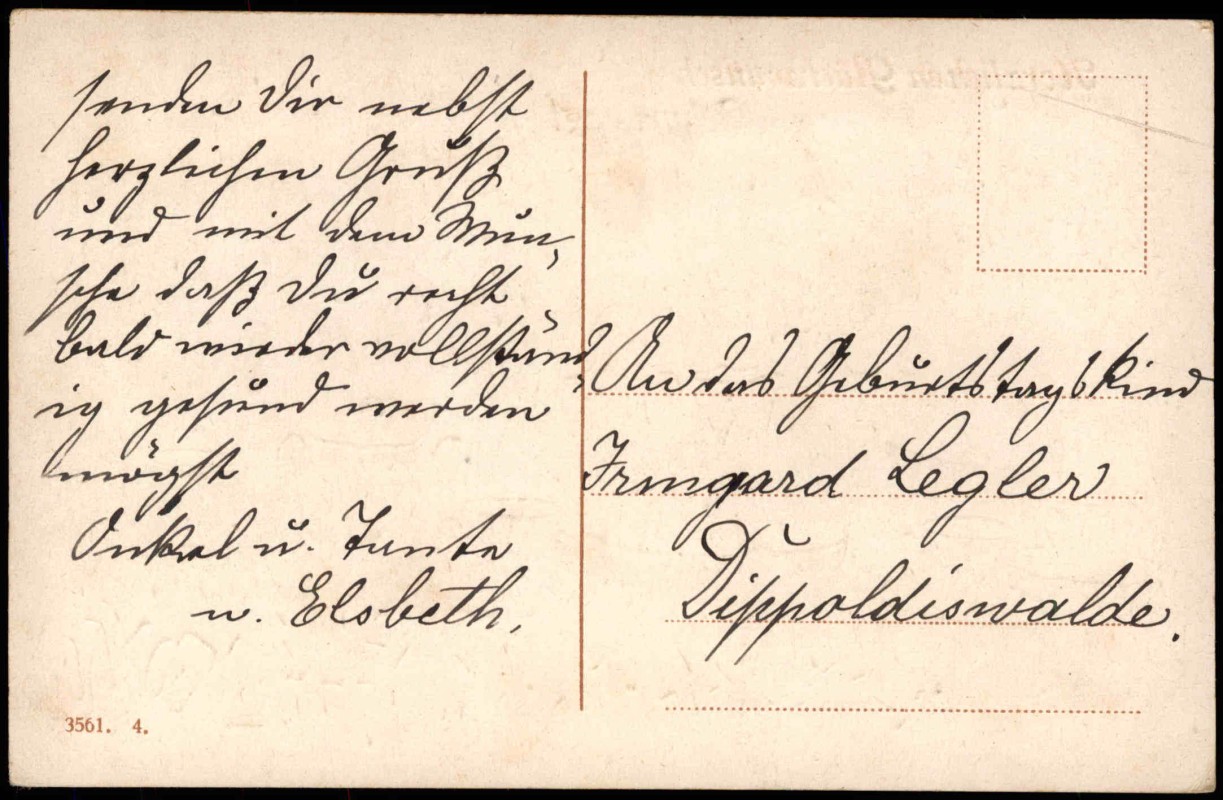 senden Dir nebst
herzlichen Gruß
und mit dem Wun-
sche daß Du recht
bald wieder vollständ-
ig gesund werden
mögst
Onkel u. Tante
u. Elsbeth,
3561. 4.
An das Geburtstagskind
Irmgard Legler
Dippoldiswalde.